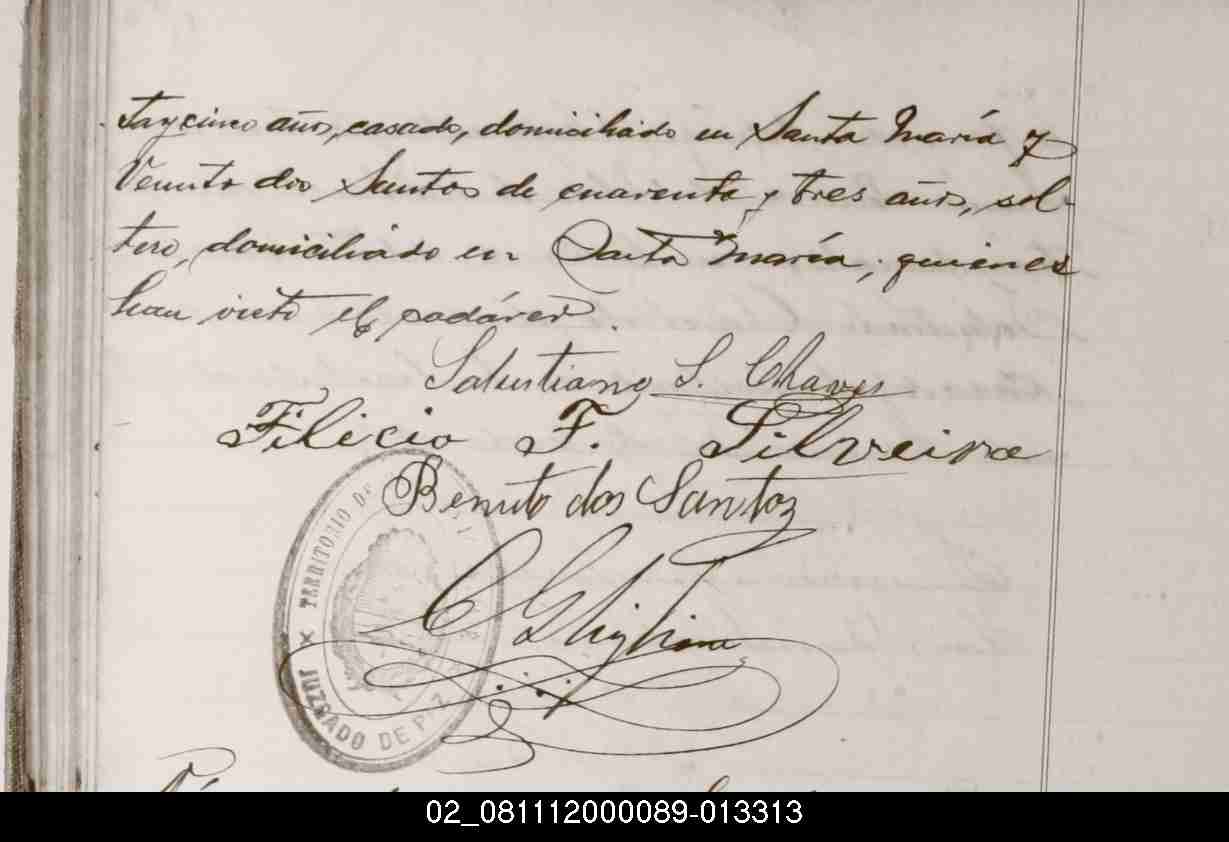 tay cinco años, casado, domiciliado en Santa María y
Venuto dos Santos de cuarenta y tres años, sol-
tero, domiciliado en Santa María; quienes
han visto el cadáver.
Salustiano S. Chaves
Filicio F. Silveira
Benuto dos Santoz
TERRITORIO DE
JUZGADO DE PAZ
02_081112000089-013313